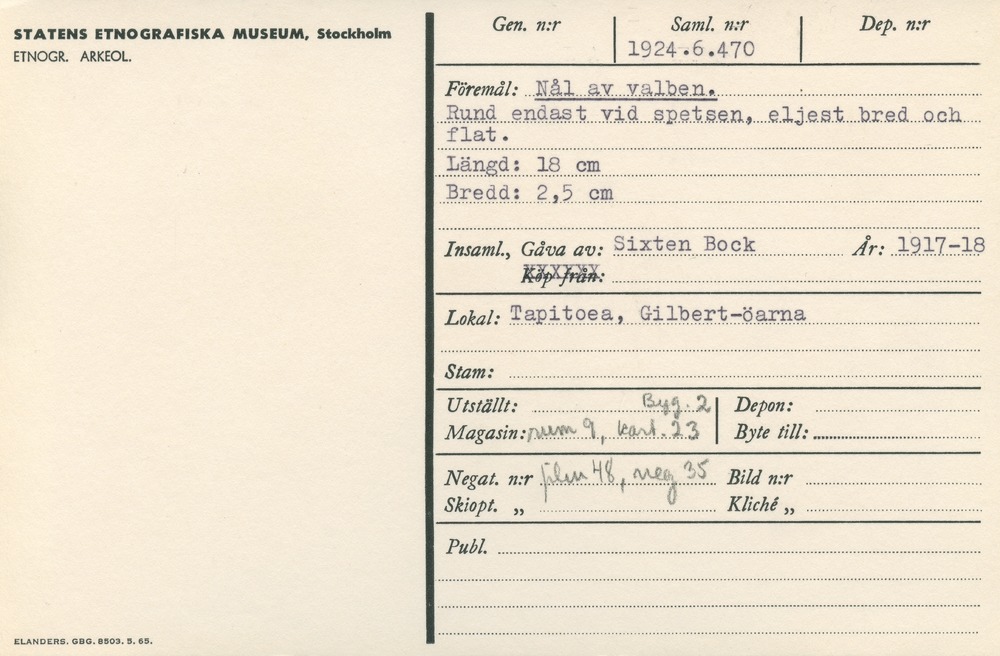 STATENS ETNOGRAFISKA MUSEUM, Stockholm
ETNOGR. ARKEOL.
Gen. n:r
Saml. n:r
Dep. n:r
1924.6.470
Föremål: Nål av valben.
Rund endast vid spetsen, eljest bred och
flat.
Längd: 18 cm
Bredd: 2,5 cm
Insaml., Gåva av: Sixten Bock År: 1917-18
Köp från:
Lokal: Tapitoea, Gilbert-öarna
Stam:
Utställt: Byg. 2 Depon:
Magasin: rum 9, kart. 23 Byte till:
Negat. n:r film 48, neg 35 Bild n:r
Skiopt. „ Kliché „
Publ.
ELANDERS. GBG. 8503. 5. 65.